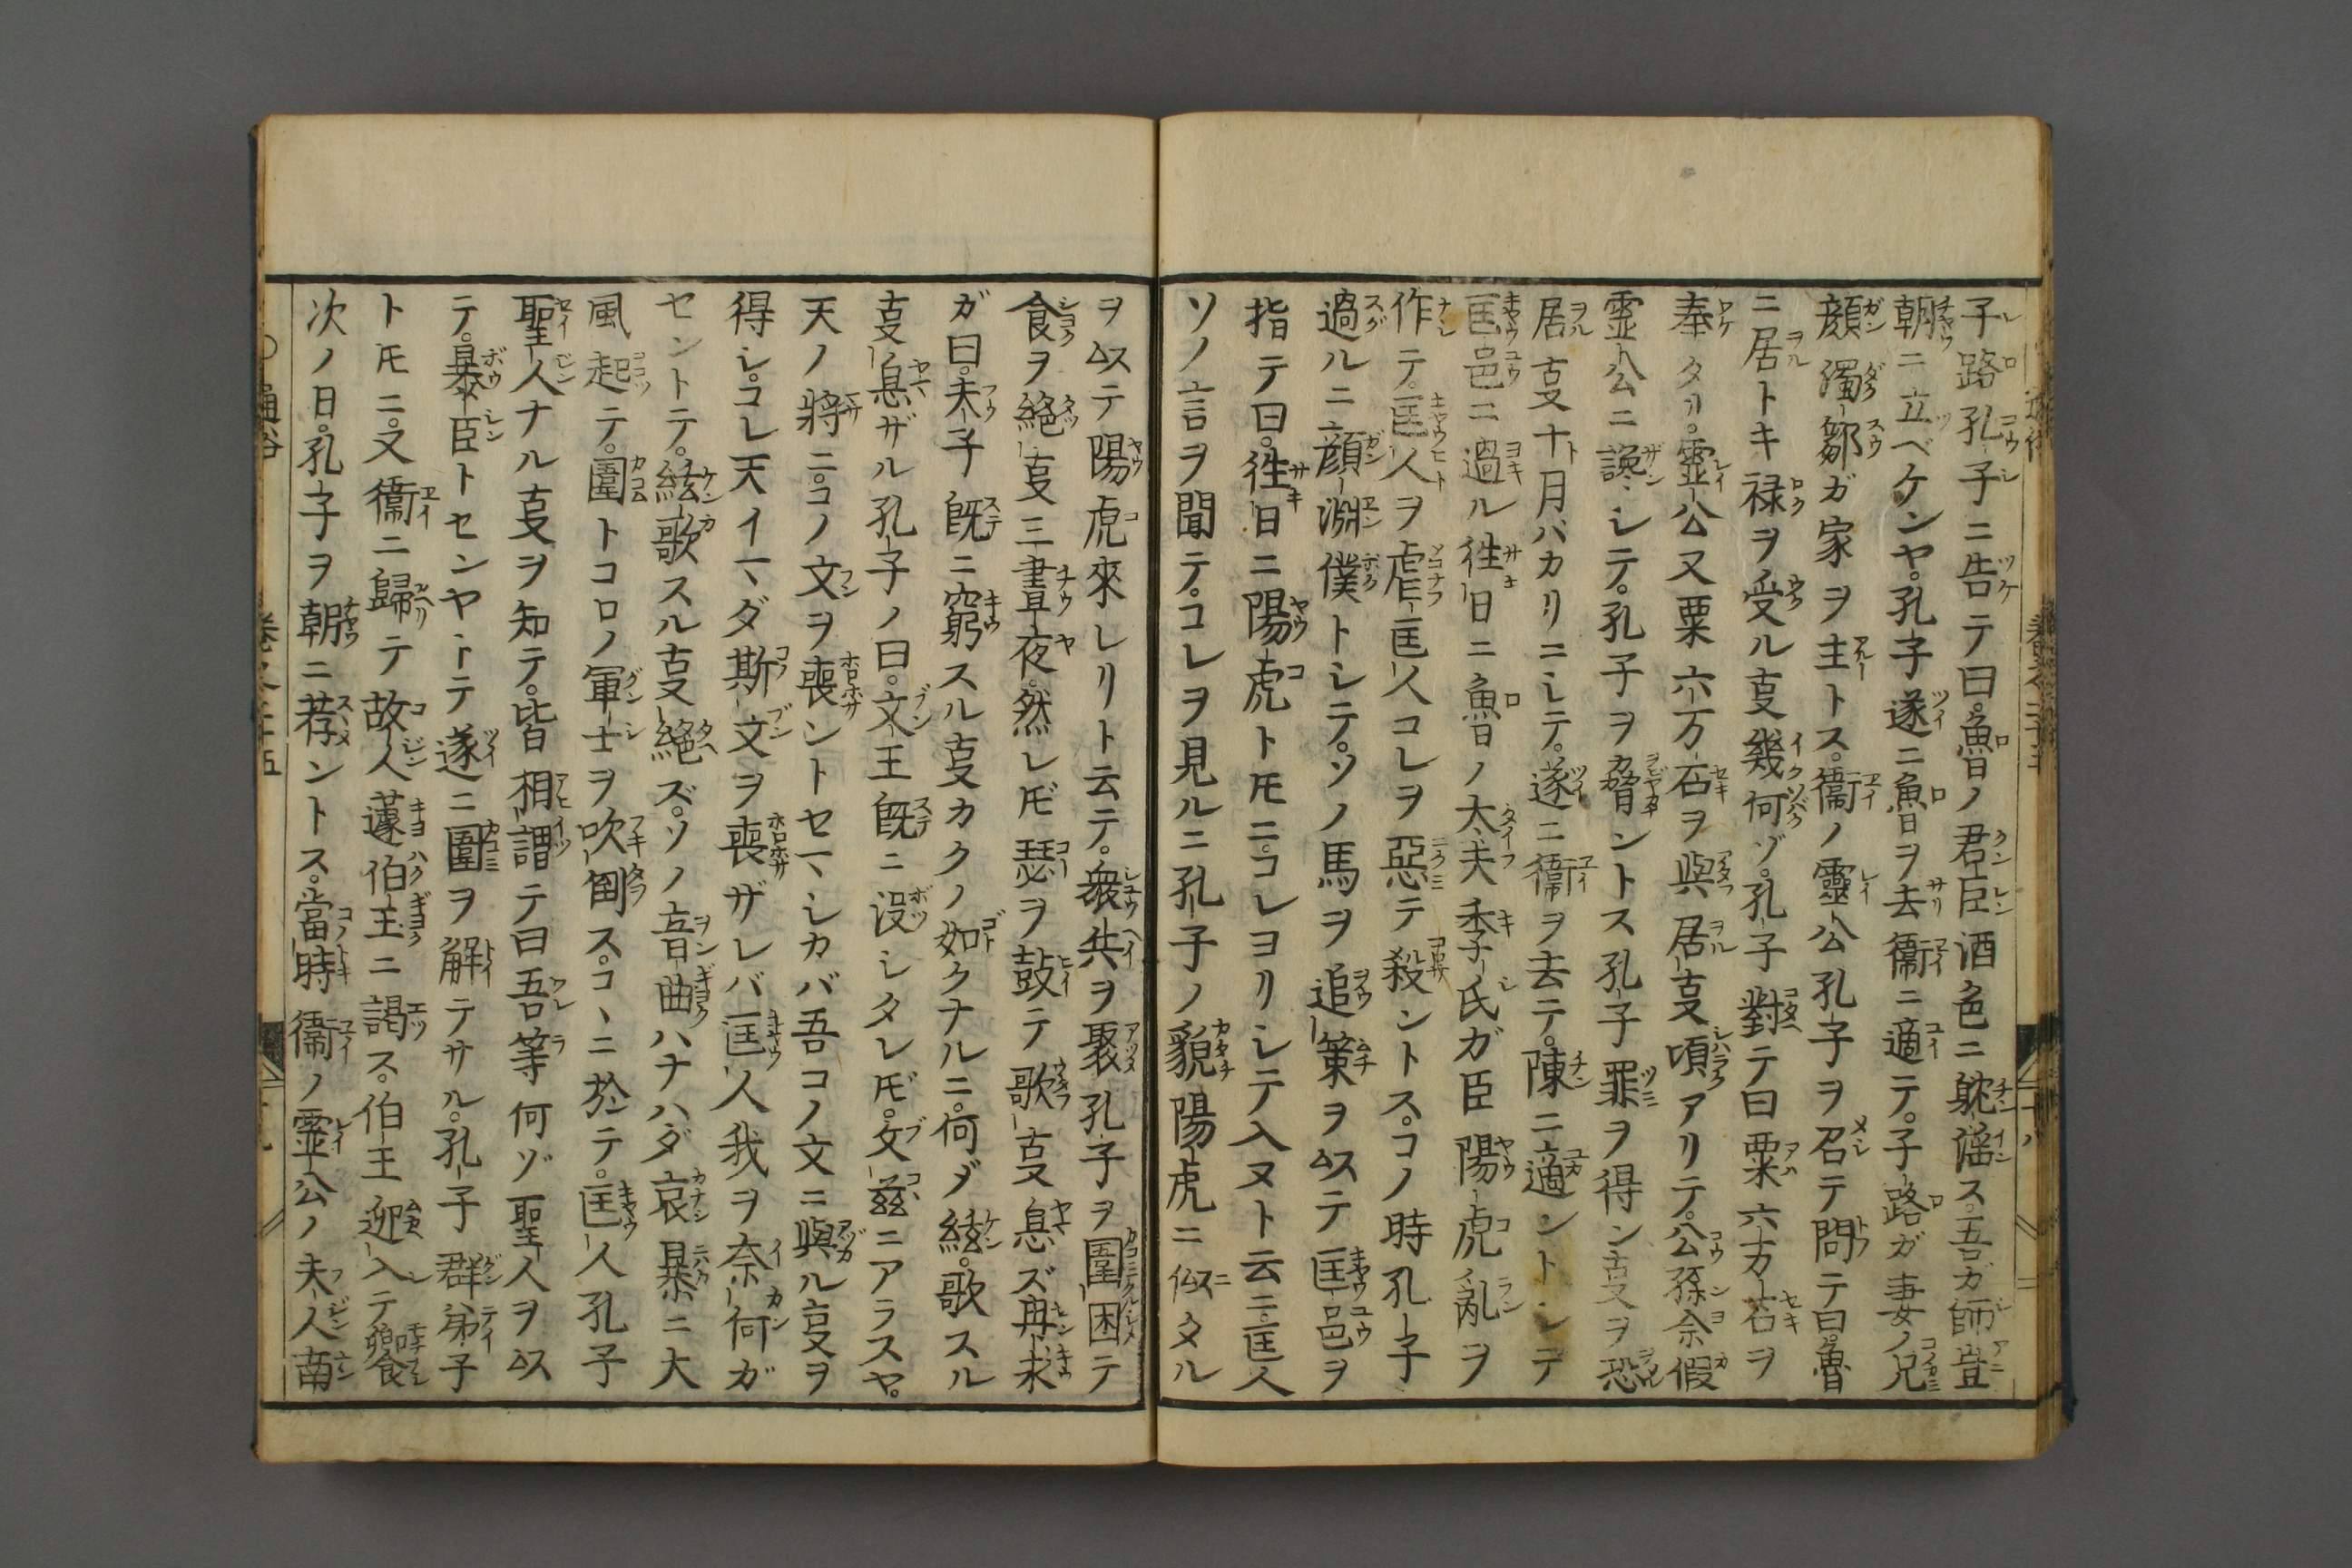 子路孔子ニ告テ曰。魯ノ君臣酒色ニ躭滛ス。吾ガ師豈
朝ニ立ベケンヤ。孔子遂ニ魯ヲ去衞ニ適テ。子路ガ妻ノ兄
顔濁鄒ガ家ヲ主トス。衞ノ靈公孔子ヲ召テ問テ曰。魯
ニ居トキ禄ヲ受ル叓幾何ゾ。孔子對テ曰粟六万石ヲ
奉タリ。霊公又粟六万石ヲ與居叓頃アリテ。公孫余假
霊公ニ譛シテ。孔子ヲ脅ントス孔子罪ヲ得ン叓ヲ恐
居叓十月バカリニシテ。遂ニ衞ヲ去テ。陳ニ適ントシテ
匡邑ニ過ル徃日ニ魯ノ大夫季氏ガ臣陽虎乱ヲ
作テ。匡人ヲ虐匡人コレヲ惡テ殺ントス。コノ時孔子
過ルニ顔淵僕トシテ。ソノ馬ヲ追策ヲ以テ匡邑ヲ
指テ曰。徃日ニ陽虎トモニ。コレヨリシテ入ヌト云ニ。匡人
ソノ言ヲ聞テ。コレヲ見ルニ孔子ノ貌陽虎ニ似タル
ヲ以テ陽虎來レリト云テ。衆兵ヲ聚孔子ヲ圍困テ
食ヲ絶叓三晝夜。然レ𪜈瑟ヲ鼓テ歌叓息ズ冉求
ガ曰。夫子既ニ窮スル叓カクノ如クナルニ。何ダ絃歌スル
叓息ザル孔子ノ曰。文王既ニ没シタレ𪜈。文茲ニアラスヤ。
天ノ將ニ。コノ文ヲ喪ントセマシカバ吾コノ文ニ與ル叓ヲ
得レ。コレ天イマヽダ斯文ヲ喪ザレバ匡人我ヲ奈何ガ
セントテ。絃歌スル叓絶ズ。ソノ音曲ハナハダ哀暴ニ大
風起テ。圍トコロノ軍士ヲ吹倒ス。コヽニ於テ。匡人孔子
聖人ナル叓ヲ知テ。皆相謂テ曰吾等何ゾ聖人ヲ以
テ。暴臣トセンヤトテ遂ニ圍ヲ解テサル。孔子群弟子
ト𪜈ニ。又衞ニ歸テ故人蘧伯玉ニ謁ス。伯玉迎入テ饗
次ノ日。孔子ヲ朝ニ荐ントス。當時衞ノ霊公ノ夫人南